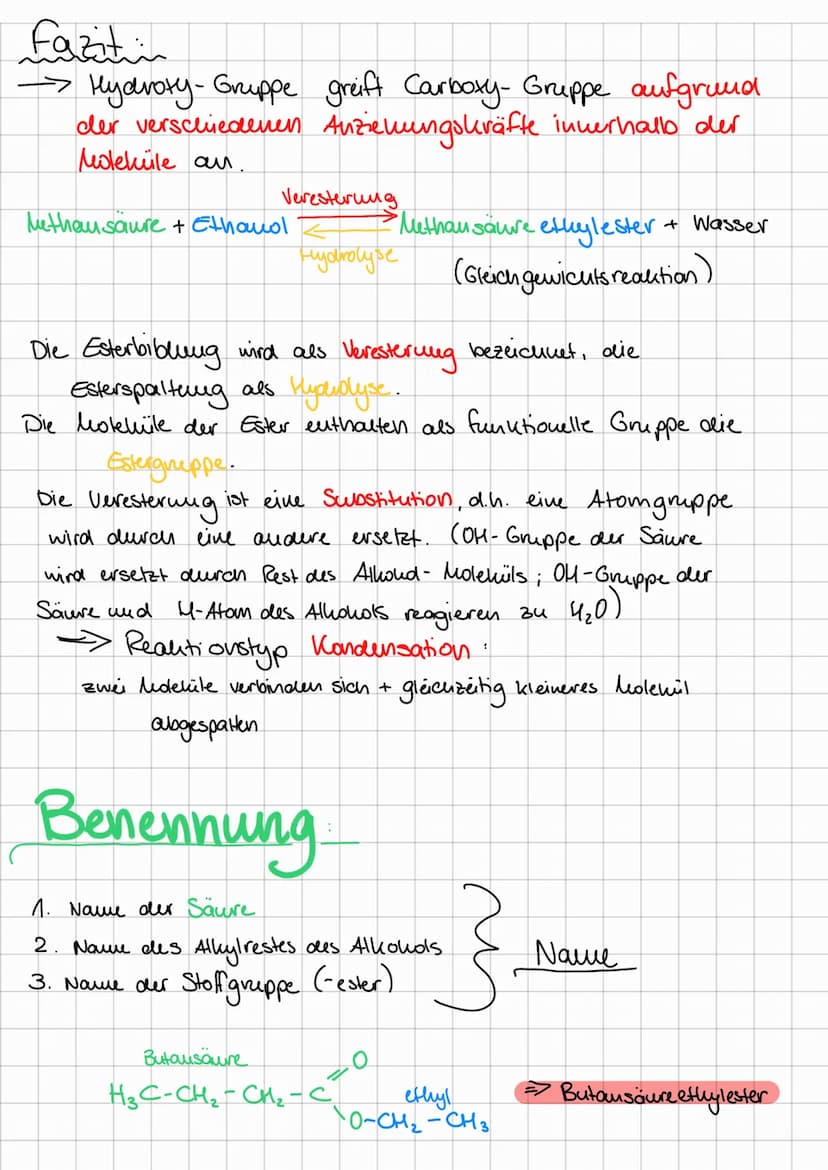 Fazit:
→ Hydroxy-Gruppe greift Carboxy-Gruppe aufgrund
der verschiedenen Anziehungskräfte innerhalb der
Moleküle an.
Veresterung
Methansäure + Ethanol ⇌ Methansäureethylester + Wasser
Hydrolyse
(Gleichgewichtsreaktion)
Die Esterbiblung wird als Veresterung bezeichnet, die
Esterspaltung als Hydrolyse.
Die Moleküle der Ester enthalten als funktionelle Gruppe die
Estergruppe.
Die Veresterung ist eine Substitution, d.h. eine Atomgruppe
wird durch eine andere ersetzt. (OH-Gruppe der Säure
wird ersetzt durch Rest des Alkohol-Moleküls; OH-Gruppe der
Säure und H-Atom des Alkohols reagieren zu H₂O)
=> Reaktionstyp Kondensation:
zwei Moleküle verbinden sich + gleichzeitig kleineres Molekül
abgespalten
Benennung:
1. Name der Säure
2. Name des Alkylrestes des Alkohols
3. Name der Stoffgruppe (-ester)
Name
Butansäure
O
H₃C-CH₂-CH₂-C
ethyl
O-CH₂-CH₃
=> Butansäureethylester